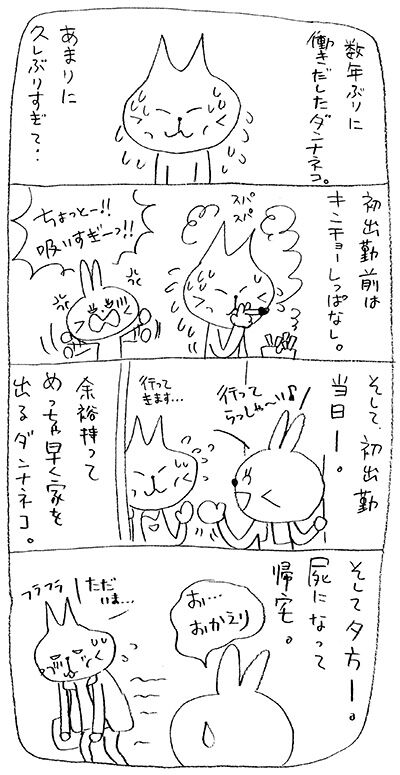 数年ぶりに
働きだしたダンナネコ。
あまりに
久しぶりすぎて・・
初出勤前は
キンチョーしっぱなし。
スパ
スパ
ちょっとー!!
吸いすぎーっ!!
そして、初出勤
当日ー。
行って
らっしゃ〜い♪
行って
きます…
余裕持って
めっちゃ早く家を
出るダンナネコ。
そして夕方ー。
屍になって
帰宅。
お…
おかえり
ただ
いま…
フラフラ